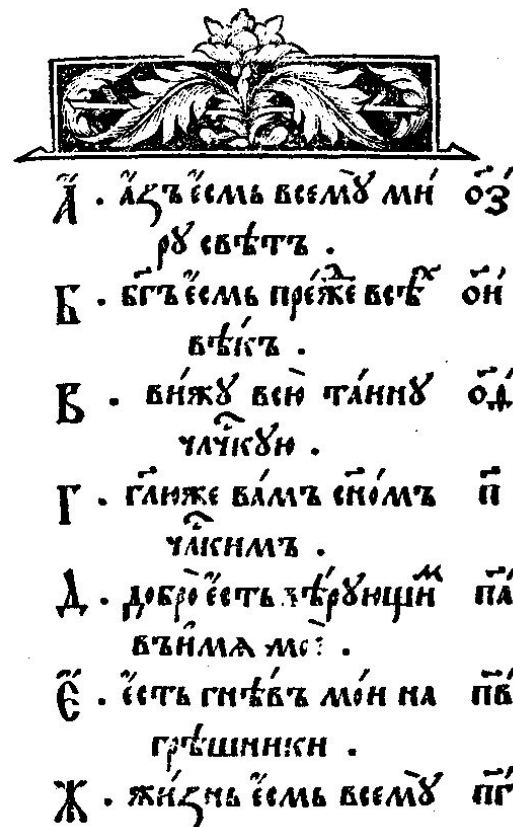 А҆҃ . А҆́зъ є҆́смь всемꙋ̀ ми́ о҃з
рꙋ свѣ́тъ .
Б . бг҃ъ є҆́смь пре́жⷣе всѣⷯ о҃и
вѣ́къ .
В . ви́жꙋ всю̀ та́инꙋ о҃ѳ
члч҃кꙋю .
Г . гл҃ю же ва́мъ сн҃о́мъ п҃
чл҃кимъ .
Д . добро̀ є҆́сть вѣ́рꙋющиⷨ п҃а
въ и҆́мѧ моѐ .
Є҆҃ . є҆́сть гнѣ́въ мо́и на п҃в
грѣ́шники .
Ж . жи́знь є҆́смь всемꙋ̀ п҃г